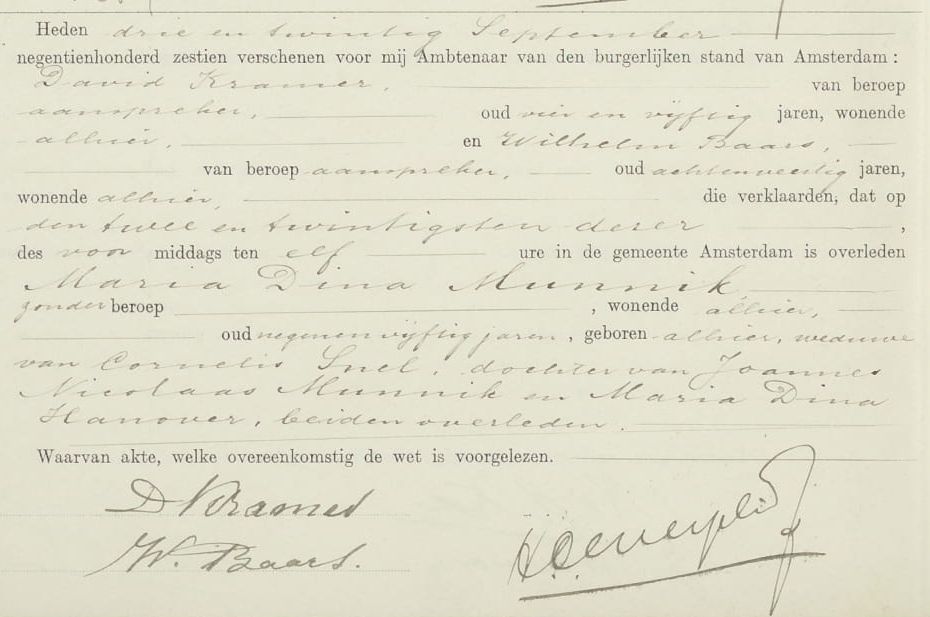 Heden drie en twintig September
negentienhonderd zestien verschenen voor mij Ambtenaar van den burgerlijken stand van Amsterdam :
David Kramer, van beroep
aanspreker, oud vier en vijftig jaren, wonende
alhier, en Wilhelm Baars,
van beroep aanspreker, oud achtenveertig jaren,
wonende alhier, die verklaarden, dat op
den twee en twintigsten dezer ,
des voor middags ten elf ure in de gemeente Amsterdam is overleden
Maria Dina Munnik,
zonder beroep , wonende alhier,
oud negenenvijftig jaren , geboren alhier, weduwe
van Cornelis Snel, dochter van Joannes
Nicolaas Munnik en Maria Dina
Hanover, beiden overleden.
Waarvan akte, welke overeenkomstig de wet is voorgelezen.
D Kramer
W. Baars.